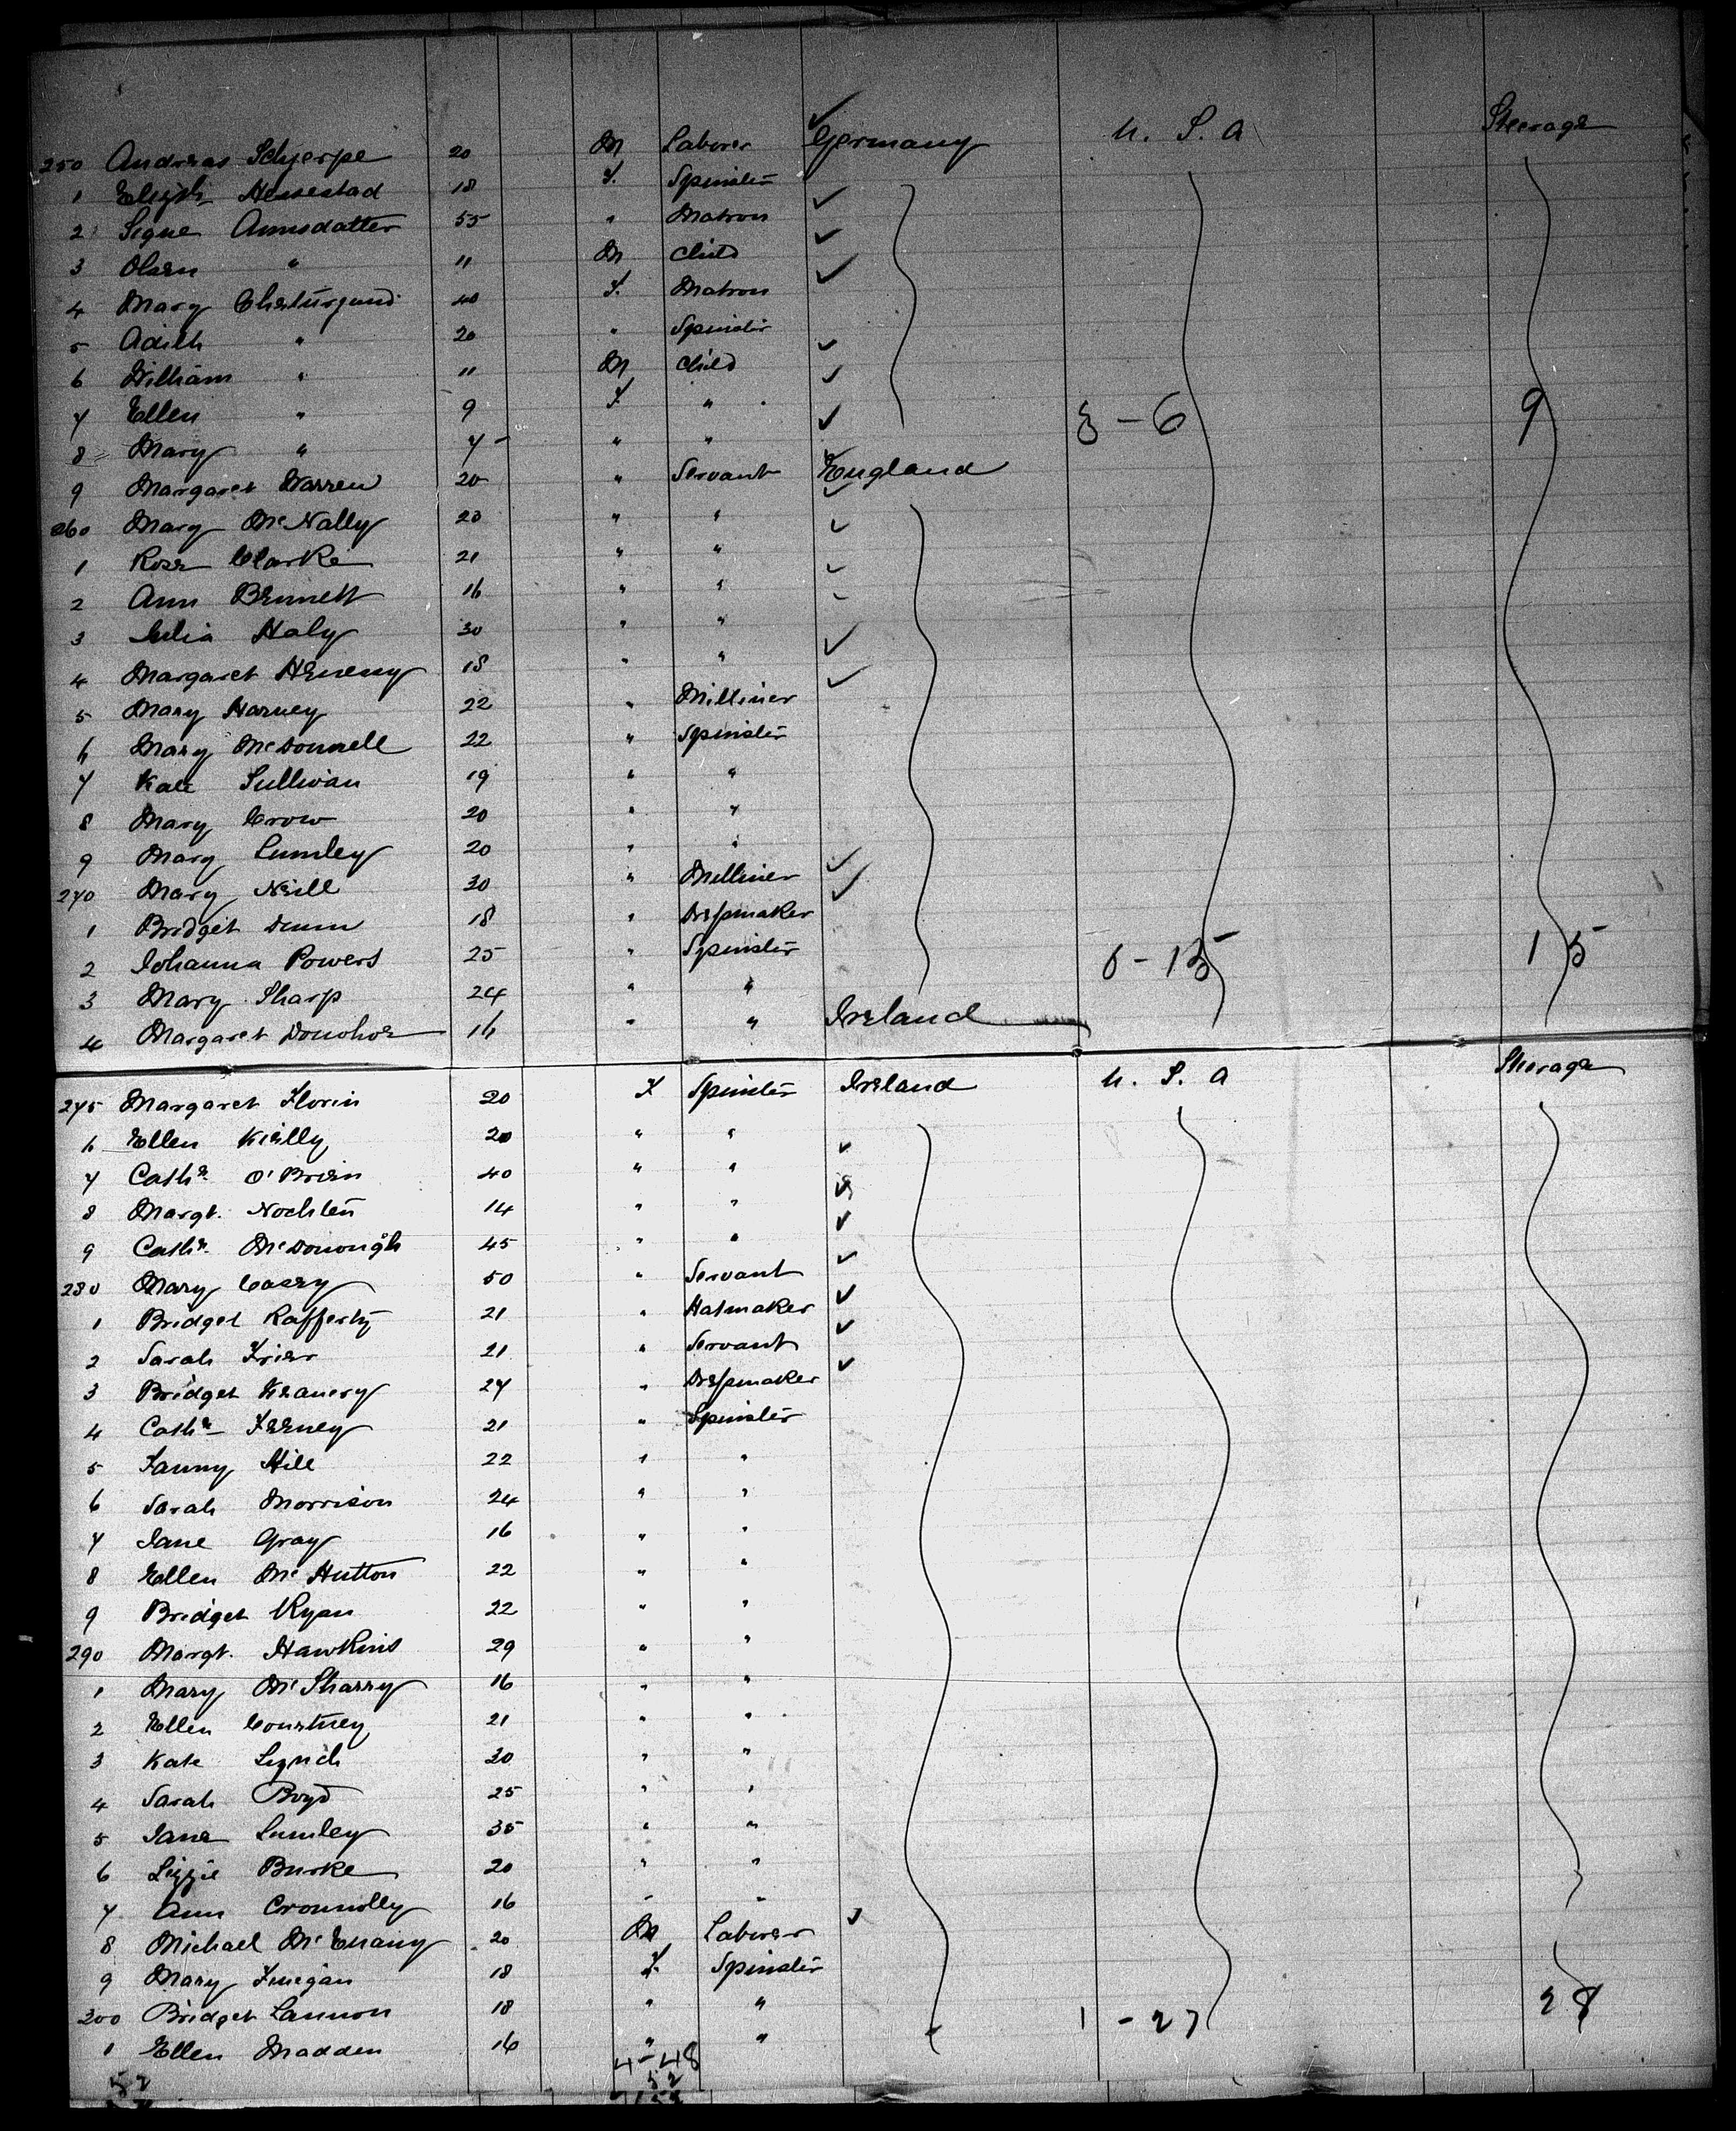 250 Andreas Schjerpe 20 M Laborer Germany U. S. A Steerage
1 Hesvestad 18 F. Spinster
2 Signe Amusdatter 55 " Matron
3 Olsen " 11 M Child
4 Mary 40 F. Matron
5 Adith " 20 " Spinster
6 William " 11 M Child
7 Ellen " 9 F. " 3-6 9
8 Mary " 7 " "
9 Margaret Warren 20 " Servant England
260 Mary McNally 20 " "
1 Rose Clarke 21 " "
2 Ann Bennett 16 " "
3 Julia Haly 30 " "
4 Margaret Henessy 18 " "
5 Mary Harney 22 " Milliner
6 Mary McDonnell 22 " Spinster
7 Kate Sullivan 19 " "
8 Mary Crow 20 " "
9 Mary Lumley 20 " "
270 Mary Neill 20 " Milliner
1 Bridget Dunn 18 " Dressmaker
2 Johanna Powers 25 " Spinster 15
3 Mary Sharp 24 " "
4 Margaret Donohoe 16 " " Ireland
275 Margaret Florin 20 F Spinster Ireland U. S. A Steerage
6 Ellen Kielly 20 " "
7 Cathe O'Brien 40 " "
8 Margt. Nochten 14 " "
9 Cathe McDonough 45 " "
280 Mary Casey 50 " Servant
1 Bridget Rafferty 21 " Hatmaker
2 Sarah Frier 21 " Servant
3 Bridget Keanery 27 " Dressmaker
4 Cathe Feeney 21 " Spinster
5 Fanny Hill 22 " "
6 Sarah Morrison 24 " "
7 Jane Gray 16 " "
8 Ellen McHutton 22 " "
9 Bridget Ryan 22 " "
290 Margt. Hawkins 29 " "
1 Mary McSharry 16 " "
2 Ellen Courtney 21 " "
3 Kate Lynch 20 " "
4 Sarah Boyd 25 " "
5 Jane Lumley 35 " "
6 Lizzie Burke 20 " "
7 Ann Cronnolly 16 " "
8 Michael McEnany 20 M Laborer
9 Mary Finegan 18 F. Spinster
300 Bridget Lannon 18 " " 1-27 28
1 Ellen Madden 16 " "
4-48
52 52